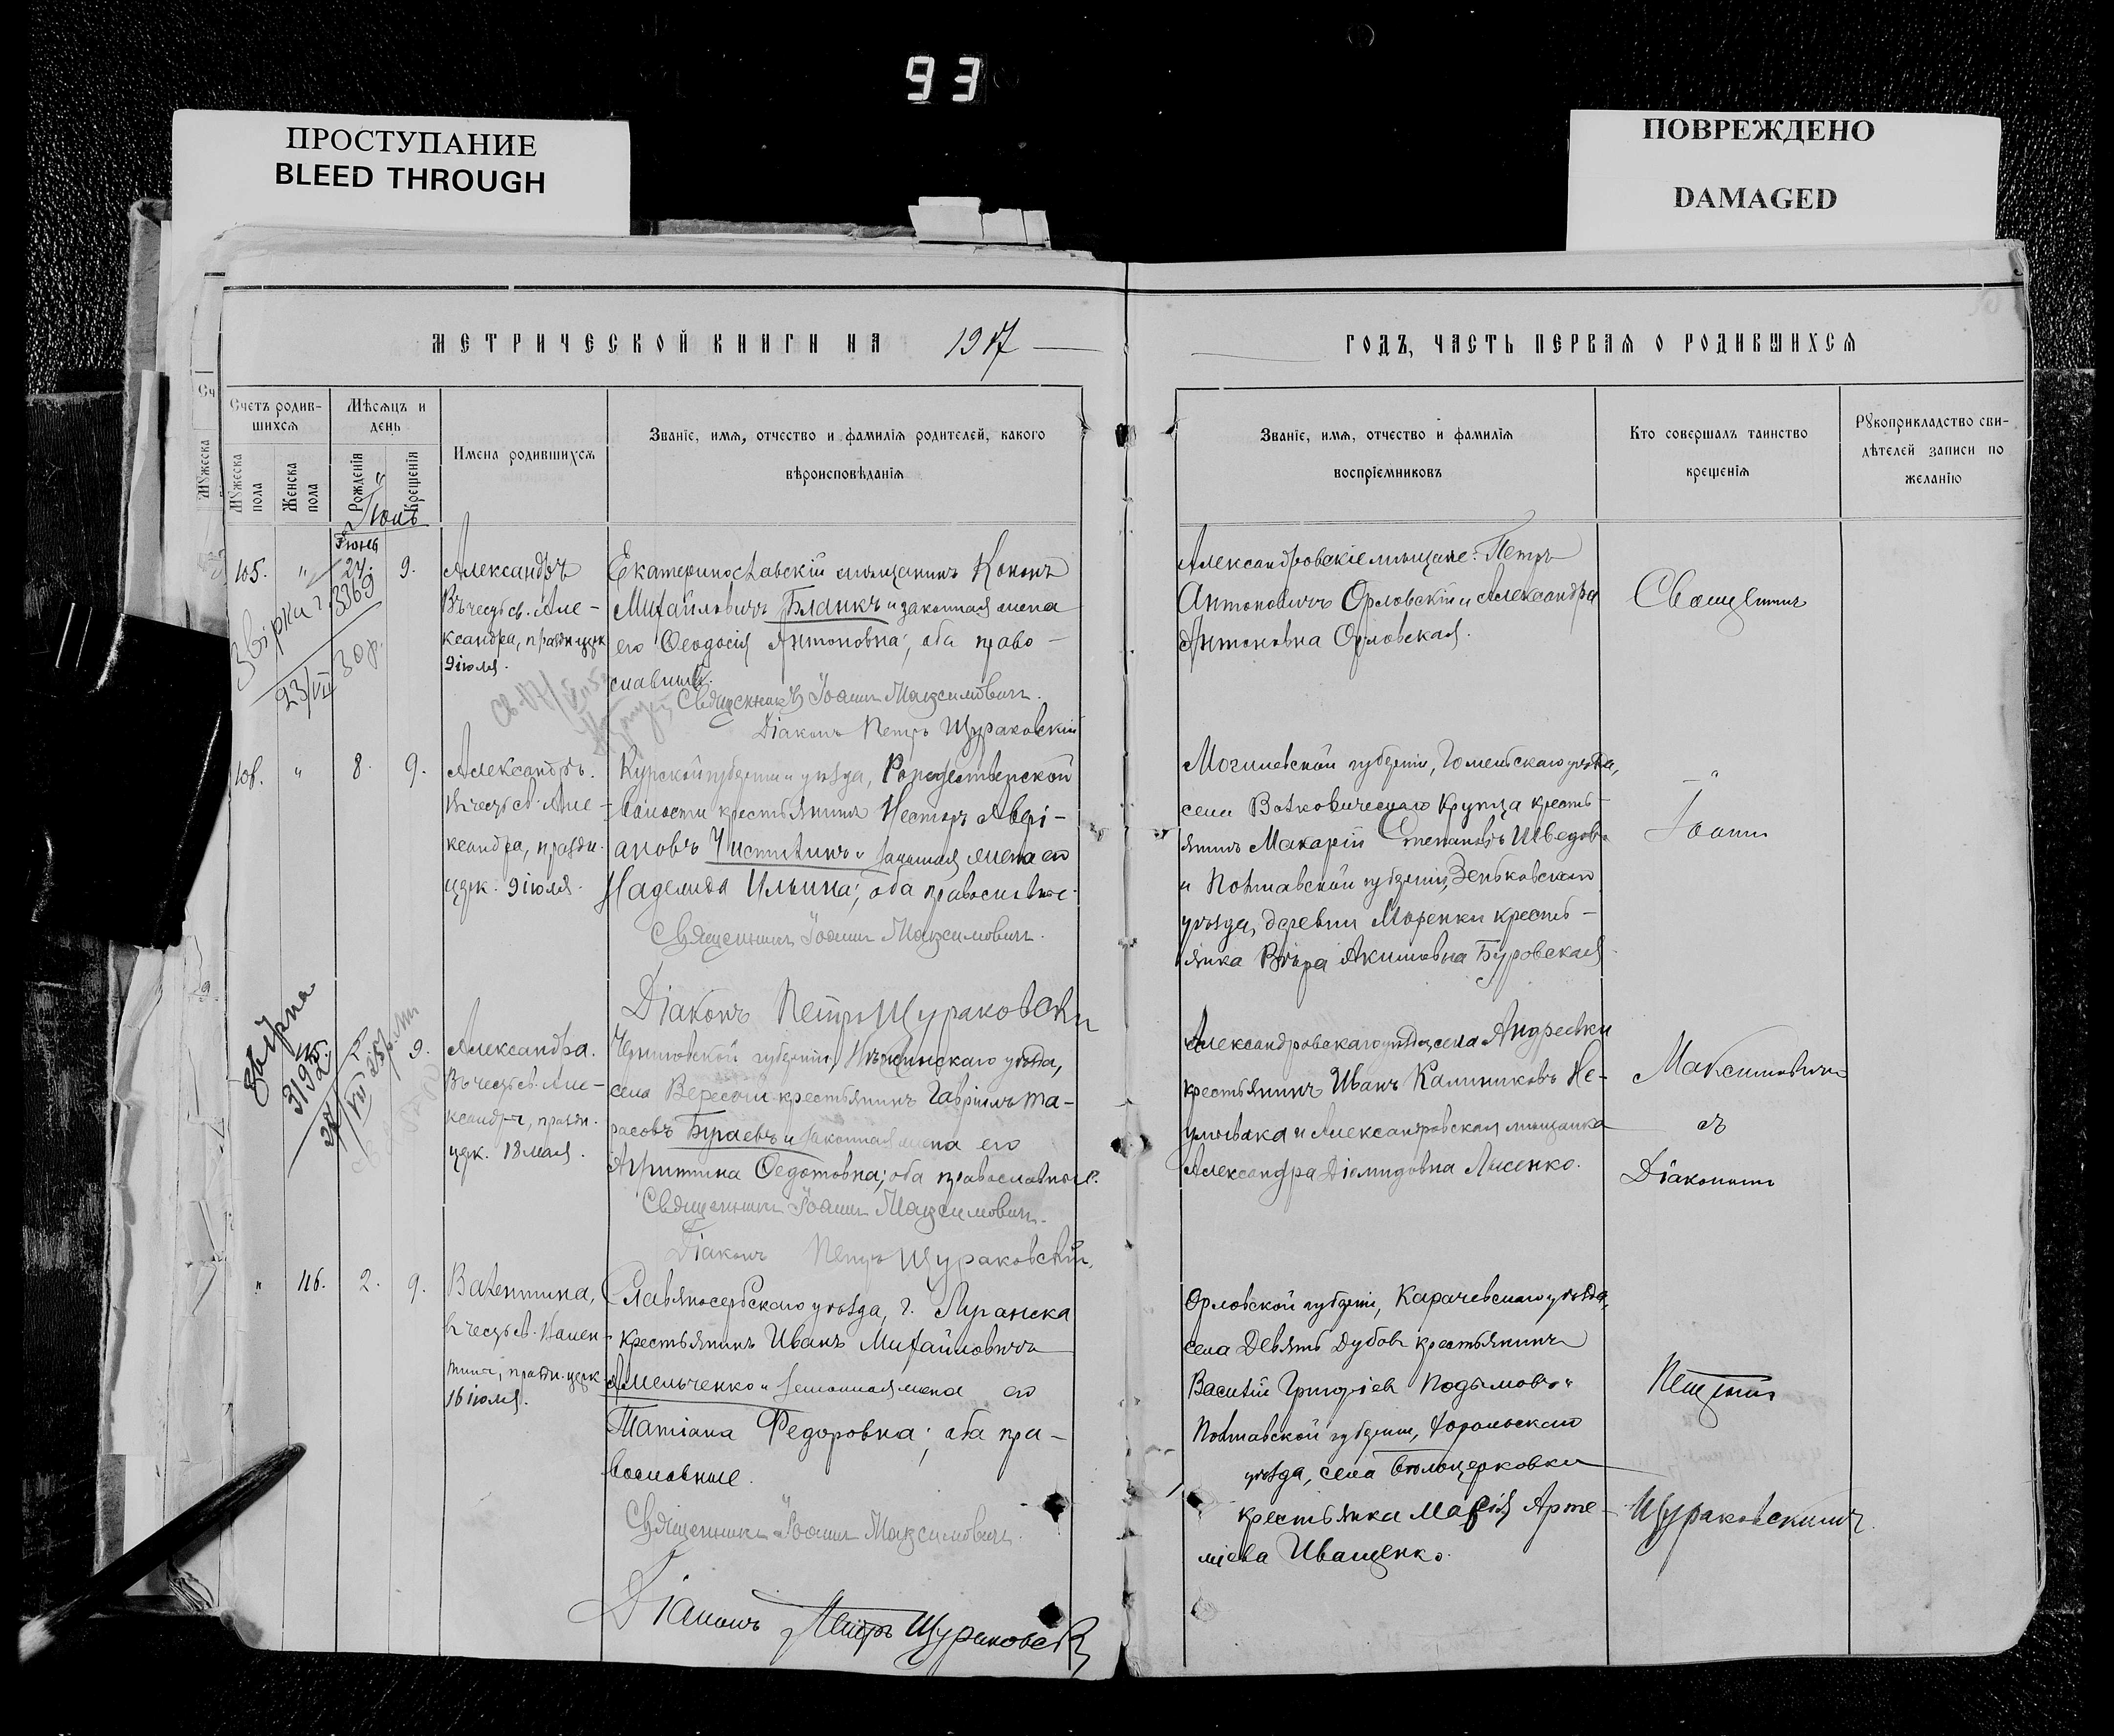 93
ПРОСТУПАНИЕ
BLEED THROUGH
ПОВРЕЖДЕНО
DAMAGED
МЕТРИЧЕСКОЙ КНИГИ НА 1917
ГОДЪ, ЧАСТЬ ПЕРВАЯ О РОДИВШИХСЯ
Счетъ родив-
шихся
Мѣсяцъ и
день
Имена родившихся
Званіе, имя, отчество и фамилія родителей, какого
вѣроисповѣданія
Мужеска
пола
Женска
пола
Рожденія
Крещенія
Званіе, имя, отчество и фамилія
воспріемниковъ
Кто совершалъ таинство
крещенія
Рукоприкладство сви-
дѣтелей записи по
желанію
Іюль
Іюнь
105. " 27. 9.
Александръ
Въ честь св. Але-
ксандра, праздн. церк
9 іюля.
Екатеринославскій мѣщанинъ Кононъ
Михайловичъ Бланкъ и законная жена
его Ѳеодосія Антоновна; оба право-
славные.
Священникъ Іоаннъ Максимовичъ.
Діаконъ Петръ Щураковскій
Александровскіе мѣщане: Петръ
Антоновичъ Орловскій и Александра
Антоновна Орловская.
Священникъ
Звірка 3369
23/VII 30р.
106. " 8. 9.
Александръ.
Въ честь св. Але-
ксандра, праздн.
церк. 9 іюля.
Курской губерніи и уѣзда, Рождественской
волости крестьянинъ Несторъ Авері-
ановъ Чистилинъ и законная жена его
Надежда Ильина; оба православные.
Священникъ Іоаннъ Максимовичъ.
Діаконъ Петръ Щураковскій
Могилевской губерніи, Гомельскаго уѣзда,
села крестъ-
янинъ Макарій Степановъ Шведовъ
и Полтавской губерніи, Зеньковскаго
уѣзда, деревни Моренки кресть-
янка Вѣра Акимовна Буровская.
Іоаннъ
Звірка
3195
9.
Александра.
Въ честь св. Але-
ксандры, праздн.
церк. 18 мая.
Черниговской губерніи, Нѣжинскаго уѣзда,
села Вересочи крестьянинъ Гавріилъ Та-
расовъ Бугаевъ и законная жена его
Агриппина Ѳедотовна; оба православные.
Священникъ Іоаннъ Максимовичъ.
Діаконъ Петръ Щураковскій.
Александровскаго уѣзда, села Андреевки
крестьянинъ Иванъ Калиниковъ Не-
и Александровская мѣщанка
Александра Діомидовна Лысенко.
Максимовичъ
съ
Діакономъ
" 116. 2. 9.
Валентина,
въ честь св. Вален-
тины, праздн. церк
16 іюля.
Славяносербскаго уѣзда, г. Луганска
крестьянинъ Иванъ Михайловичъ
Амельченко и законная жена его
Татіана Федоровна; оба пра-
вославные.
Священникъ Іоаннъ Максимовичъ.
Діаконъ Петръ Щураковскій
Орловской губерніи, Карачевскаго уѣзда,
села Девять Дубовъ крестьянинъ
Василій Григоріевъ Подымовъ и
Полтавской губерніи, Хорольскаго
уѣзда, села Бѣлоцерковки
крестьянка Марія Арте-
міева Иващенко.
Петромъ
Щураковскимъ.